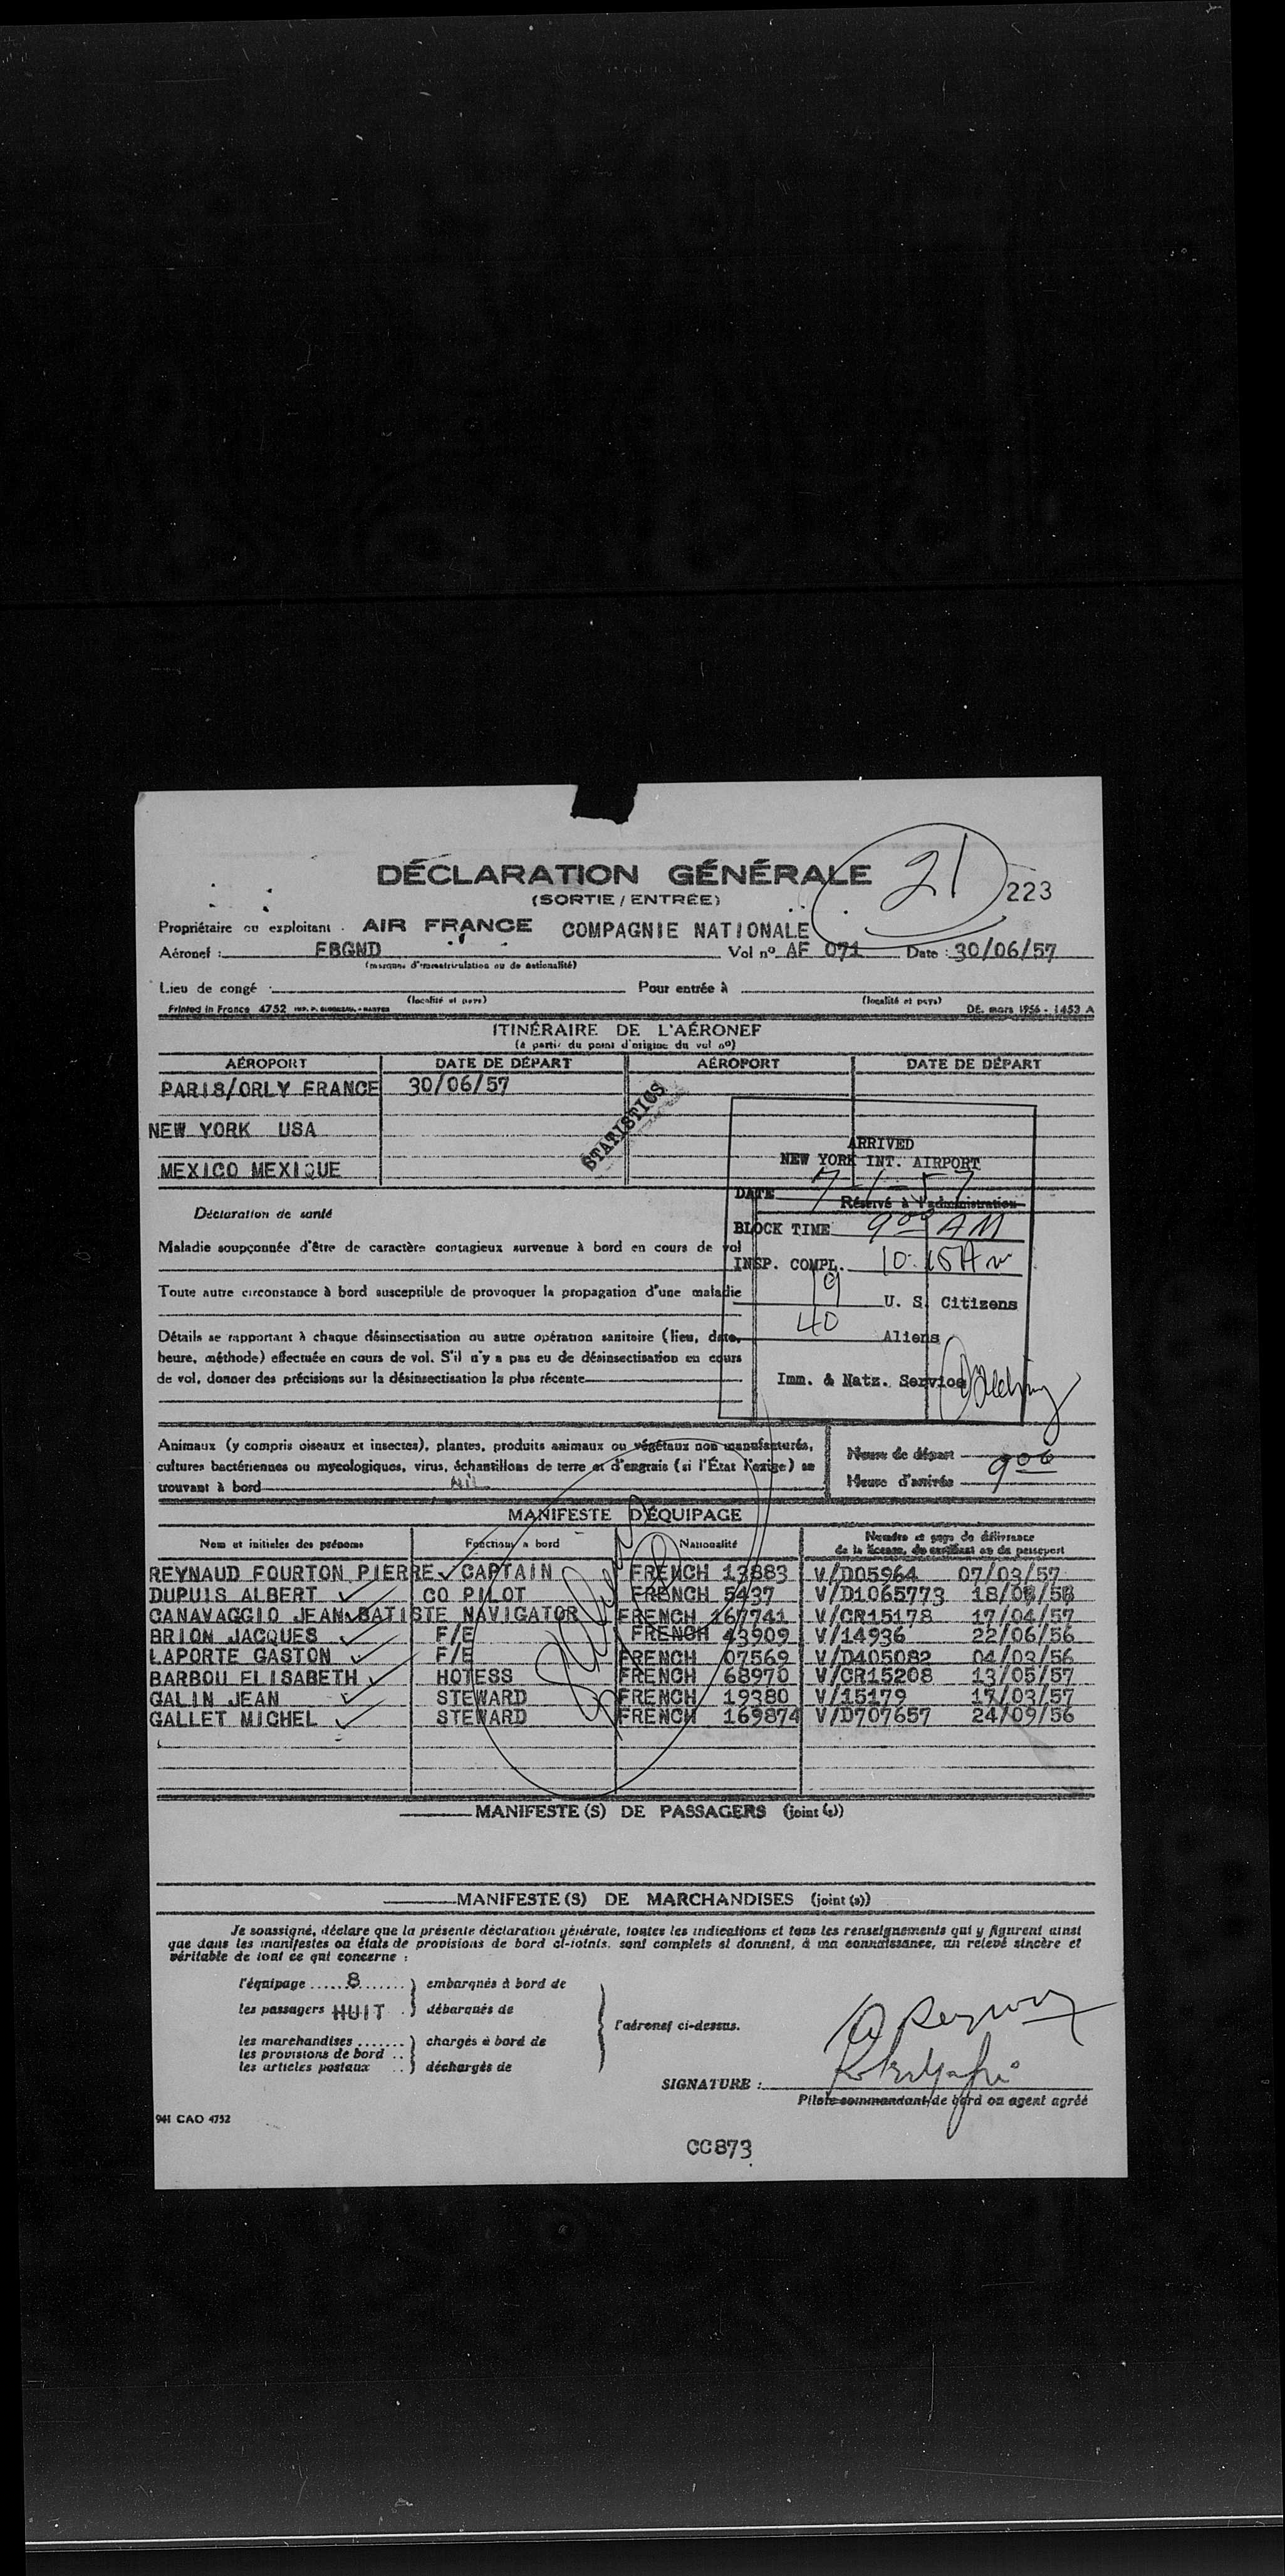 21
223
DÉCLARATION GÉNÉRALE
(SORTIE / ENTRÉE)
Propriétaire ou exploitant : AIR FRANCE COMPAGNIE NATIONALE
Aéronef : FBGND Vol nº AF 071 Date : 30/06/57
(marques d'immatriculation ou de nationalité)
Lieu de congé : Pour entrée à
(localité et pays) (localité et pays)
Printed in France 4752 DE. mars 1956 - 1453 A
ITINÉRAIRE DE L'AÉRONEF
(à partir du point d'origine du vol nº)
AÉROPORT DATE DE DÉPART AÉROPORT DATE DE DÉPART
PARIS/ORLY FRANCE 30/06/57
NEW YORK USA
MEXICO MEXIQUE
STATISTICS
ARRIVED
NEW YORK INT. AIRPORT
DATE 7-1-57
Réservé à l'administration
BLOCK TIME 9 00 AM
INSP. COMPL. 10:15 AM
19 U. S. Citizens
40 Aliens
Imm. & Natz. Service
Déclaration de santé
Maladie soupçonnée d'être de caractère contagieux survenue à bord en cours de vol
Toute autre circonstance à bord susceptible de provoquer la propagation d'une maladie
Détails se rapportant à chaque désinsectisation ou autre opération sanitaire (lieu, date,
heure, méthode) effectuée en cours de vol. S'il n'y a pas eu de désinsectisation en cours
de vol, donner des précisions sur la désinsectisation la plus récente
Animaux (y compris oiseaux et insectes), plantes, produits animaux ou végétaux non manufacturés,
cultures bactériennes ou mycologiques, virus, échantillons de terre et d'engrais (si l'État l'exige) se
trouvant à bord Nil
Heure de départ
Heure d'arrivée 9 00
MANIFESTE D'ÉQUIPAGE
Nom et initiales des prénoms Fonctions à bord Nationalité Numéro et pays de délivrance
de la licence, du certificat ou du passeport
REYNAUD FOURTON PIERRE CAPTAIN FRENCH 13883 V/D05964 07/03/57
DUPUIS ALBERT CO PILOT FRENCH 5437 V/D1065773 18/08/56
CANAVAGGIO JEAN BATISTE NAVIGATOR FRENCH 167741 V/CR15178 17/04/57
BRION JACQUES F/E FRENCH 43909 V/14936 22/06/56
LAPORTE GASTON F/E FRENCH 07569 V/D405082 04/03/56
BARBOU ELISABETH HOTESS FRENCH 68970 V/CR15208 13/05/57
GALIN JEAN STEWARD FRENCH 19380 V/15179 17/03/57
GALLET MICHEL STEWARD FRENCH 169874 V/D707657 24/09/56
MANIFESTE(S) DE PASSAGERS (joint (s))
MANIFESTE(S) DE MARCHANDISES (joint (s))
Je soussigné, déclare que la présente déclaration générale, toutes les indications et tous les renseignements qui y figurent ainsi
que dans les manifestes ou états de provisions de bord ci-joints, sont complets et donnent, à ma connaissance, un relevé sincère et
véritable de tout ce qui concerne :
l'équipage 8 embarqués à bord de
les passagers HUIT débarqués de
l'aéronef ci-dessus.
les marchandises chargés à bord de
les provisions de bord
les articles postaux déchargés de
SIGNATURE :
Pilote commandant de bord ou agent agréé
941 CAO 4752
CC873